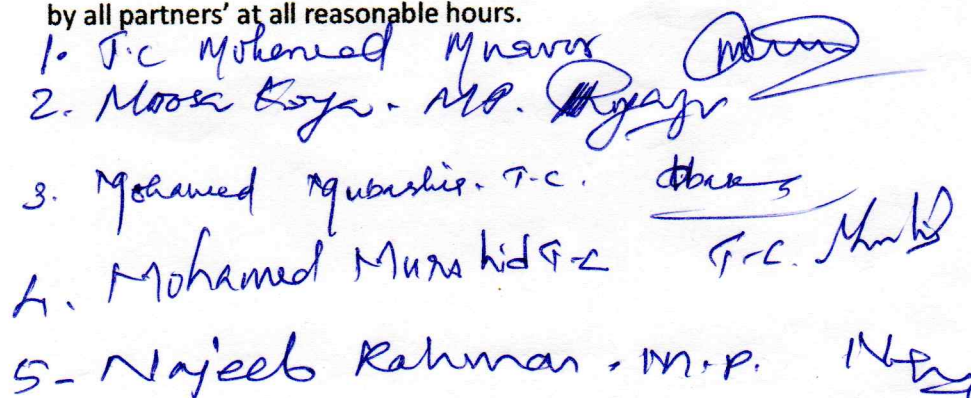 by all partners’ at all reasonable hours.
1. T.C Mohamed Munavor
2. Moosa Koya. MP.
3. Mohamed Mubashir. T.C.
4. Mohamed Murshid T.C T.C.
5- Najeeb Rahman. M.P.